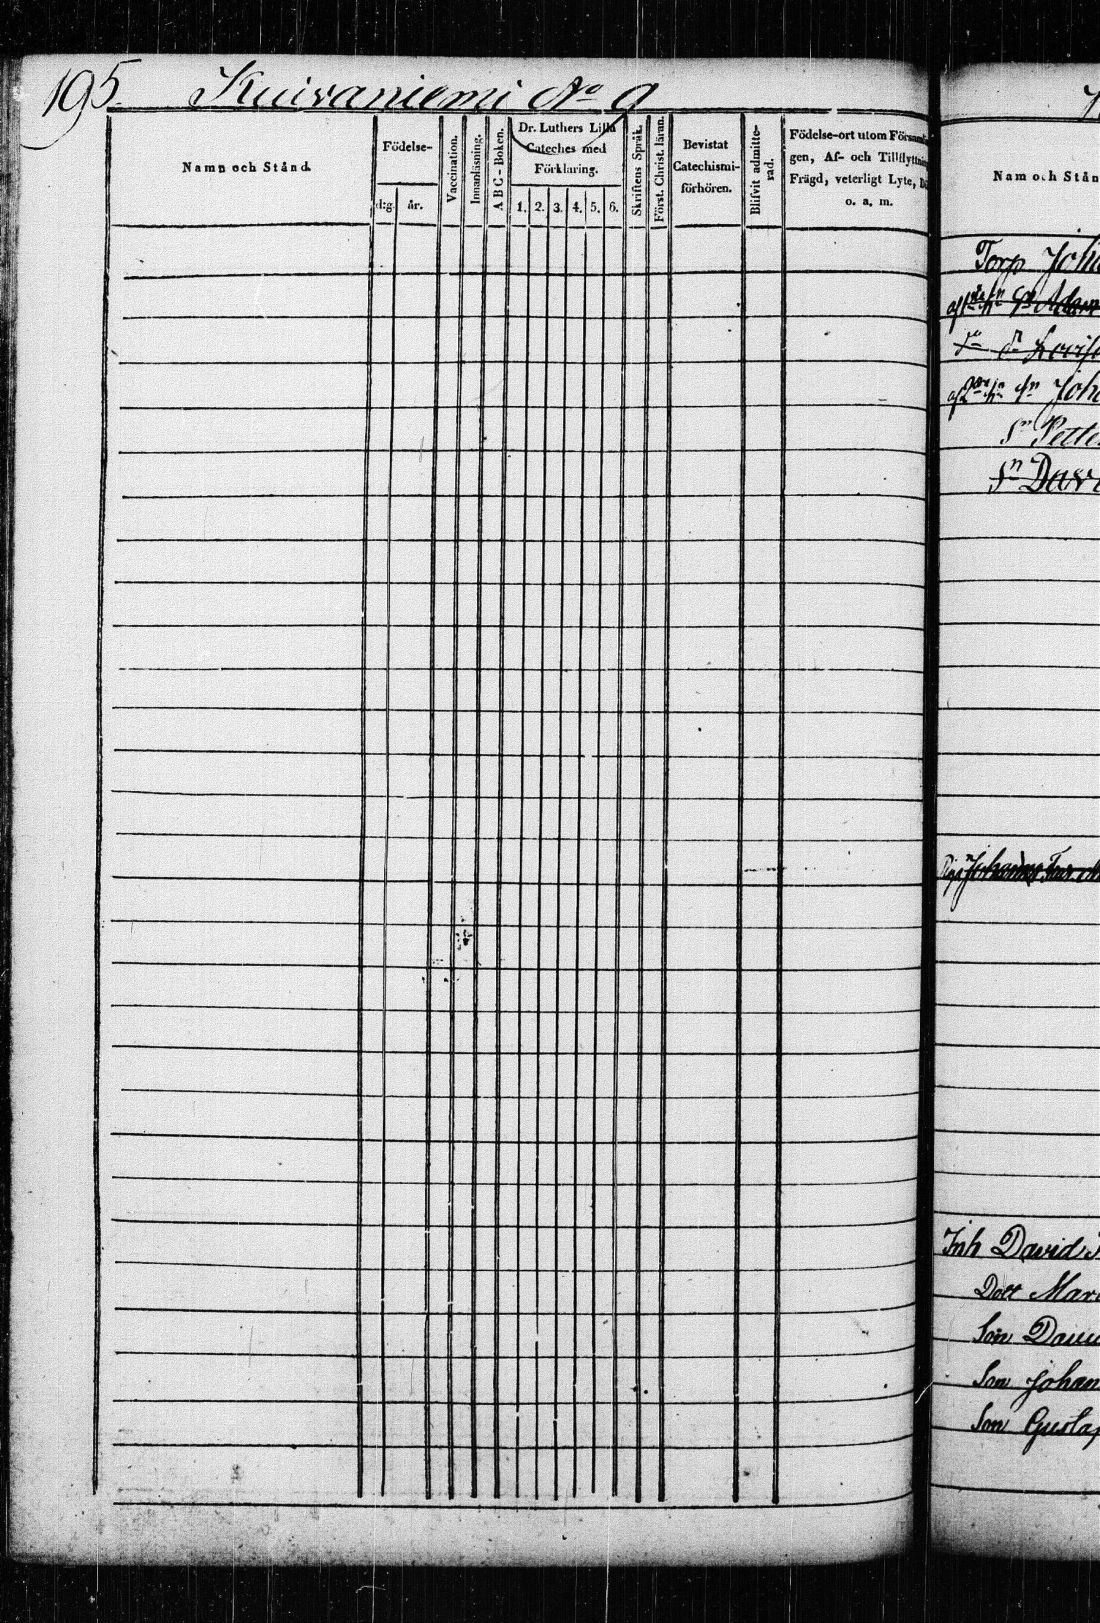 195. Kuivaniemi No 9
Namn och Stånd.
Födelse-
d:g. år.
Vaccination.
Innanläsning.
ABC-Boken.
Dr. Luthers Lilla
Cateches med
Förklaring.
1. 2. 3. 4. 5. 6.
Skriftens Språk.
Först. Christ. läran.
Bevistat
Catechismi-
förhören.
Blifvit admitte-
rad.
Födelse-ort utom Församl
gen, Af- och Tillflyttning
Frägd, veterligt Lyte,
o. a. m.
Namn och Stån
Torp Joha
Adam
Lovisa
Joh
Sn Petter
Sn Davi
Johannes
Inh David
Dott Mari
Son David
Son Johan
Son Gustaf